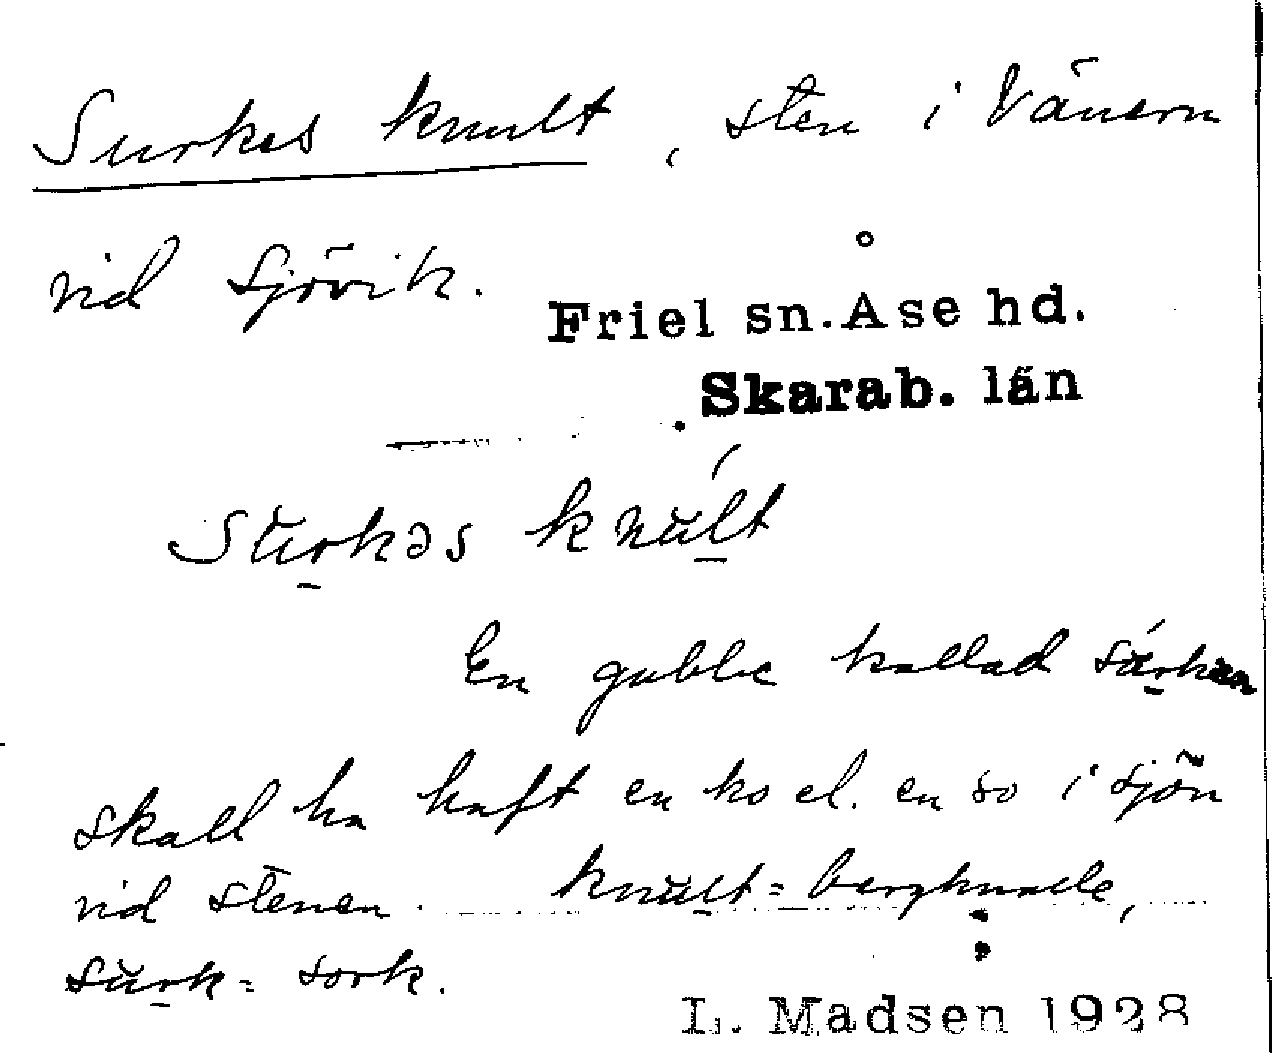 Surkes knult, sten i Vänern
vid Sjövik.
Friel sn. Åse hd.
Skarab. län
Sŭrkəs knŭ́lt
En gubbe kallad Sŭ́rken
skall ha haft en ko el. en so i sjön
vid stenen. knŭlt = bergknalle,
sŭrk = sork.
L. Madsen 1928